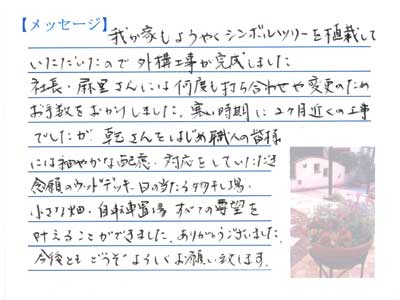 【メッセージ】
我が家もようやくシンボルツリーを植栽して
いただいたので外構工事が完成しました
社長・麻里さんには何度も打ち合わせや変更のため
お手数をおかけしました。寒い時期に2ヶ月近くの工事
でしたが さんをはじめ職人の皆様
には細やかな配慮・対応をしていただき
念願のウッドデッキ・日の当たるタタキ干し場・
小さな畑・自転車置場 すべての要望を
叶えることができました。ありがとうございました
今後とも どうぞよろしくお願い致します。